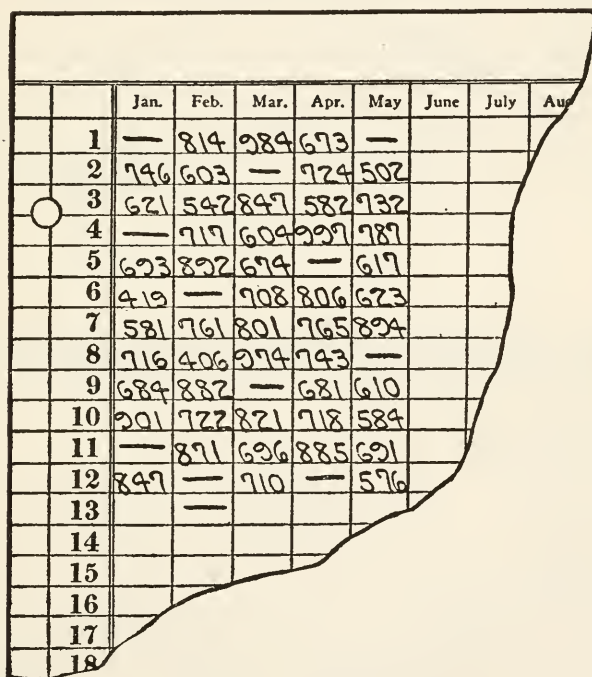 Jan. Feb. Mar. Apr. May June July Aug
1 — 814 984 673 —
2 746 603 — 724 502
3 621 542 847 582 732
4 — 717 604 997 787
5 693 892 674 — 617
6 419 — 708 806 623
7 581 761 801 765 894
8 716 406 974 743 —
9 684 882 — 681 610
10 901 722 821 718 584
11 — 871 696 885 691
12 847 — 710 — 576
13 —
14
15
16
17
18